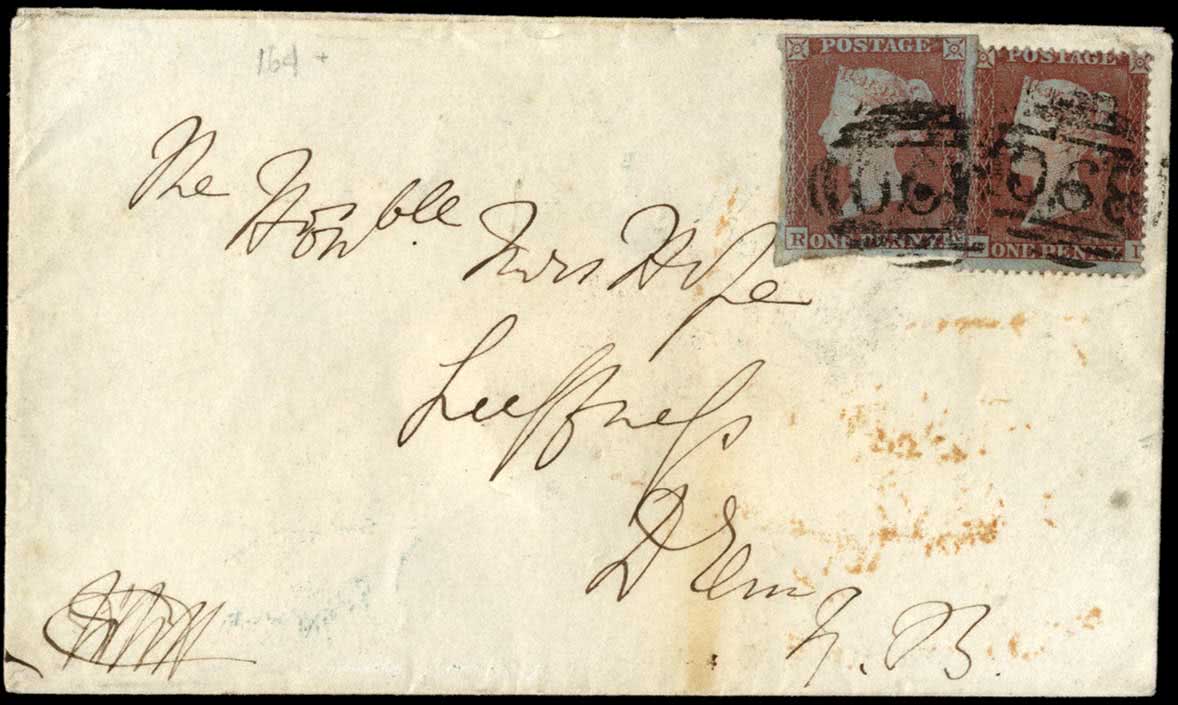 164 +
POSTAGE
POSTAGE
R ONE PENNY
ONE PENNY I
The
Honble
Mrs Hope
Luffness
Drem
N. B.